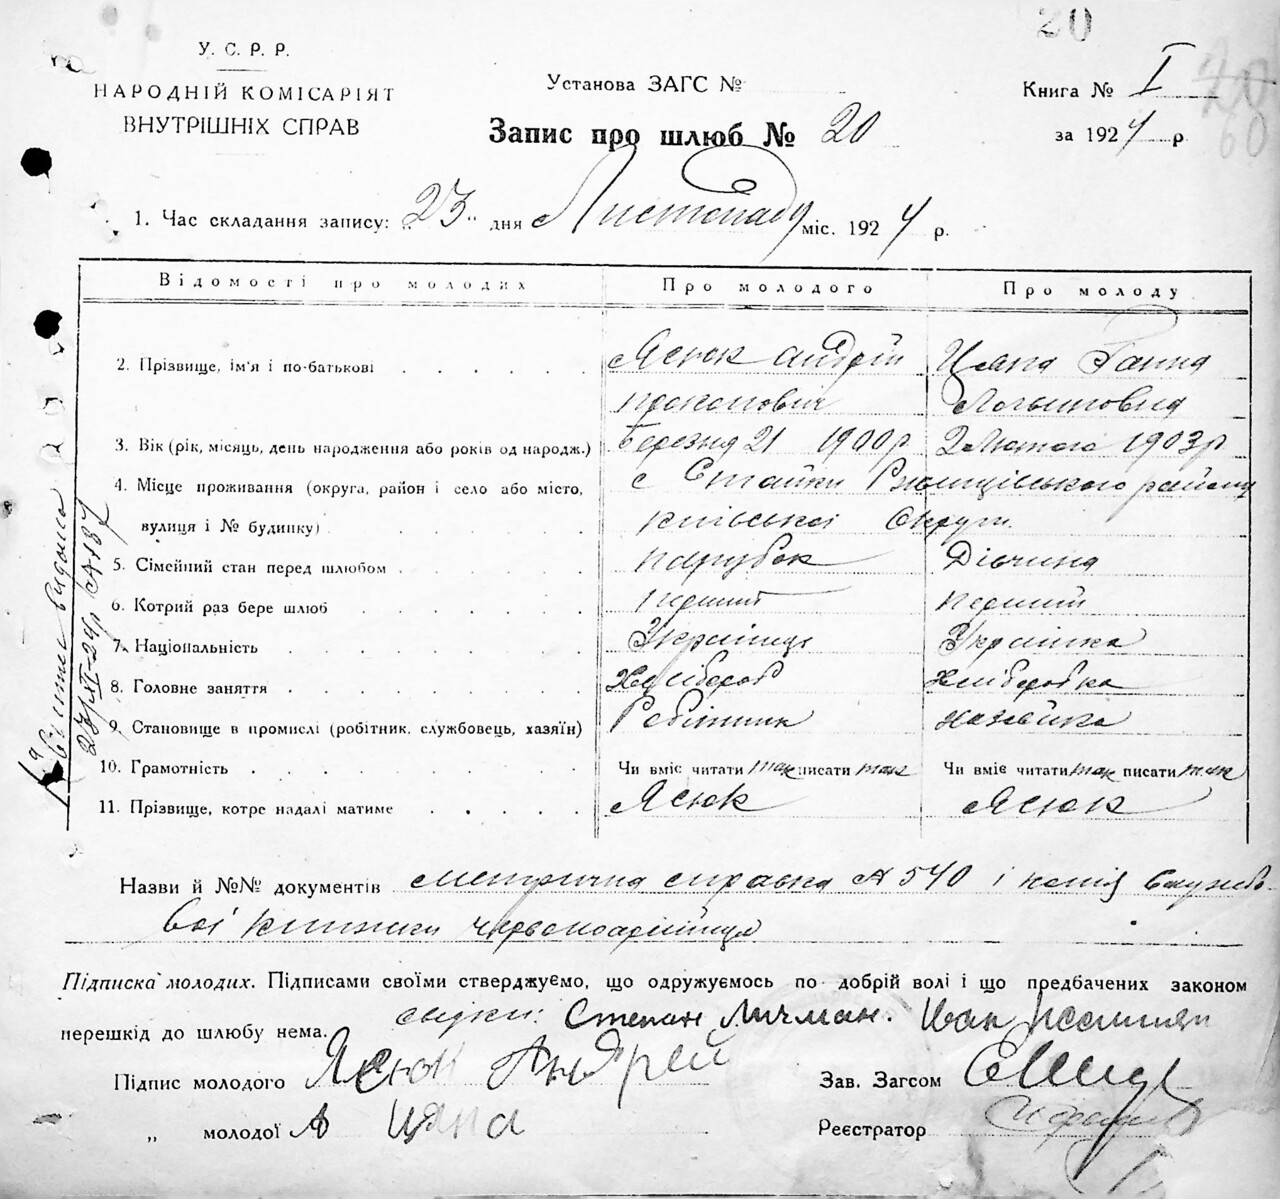 20
У. С. Р. Р.
НАРОДНІЙ КОМІСАРІЯТ
ВНУТРІШНІХ СПРАВ
Установа ЗАГС №
Запис про шлюб № 20
Книга № I
за 1924 р
20
60
1. Час складання запису: „23" дня Листопаду міс. 1924 р.
Відомості про молодих Про молодого Про молоду
2. Прізвище, ім'я і по-батькові Ясюк Андрій Цяпа Ганна
прокопович Логвиновна
3. Вік (рік, місяць, день народження або років од народж.) Березня 21 1900 р 2 Лютого 1903 р
4. Місце проживання (округа, район і село або місто, с Стайки Ржищівського району
вулиця і № будинку) київської Округи.
5. Сімейний стан перед шлюбом парубок Дівчина
6. Котрий раз бере шлюб перший перший
7. Національність Українець Українка
8. Головне заняття Хлібороб Хліборобка
9. Становище в промислі (робітник, службовець, хазяїн) Робітник хазяйка
10. Грамотність Чи вміє читати так писати так Чи вміє читати так писати так
11. Прізвище, котре надалі матиме Ясюк Ясюк
Виписка видана
27/XI-24р № 87
Назви й №№ документів метрична справка № 540 і копія службо-
вої книжки червоноармійця
Підписка молодих. Підписами своїми стверджуємо, що одружуємось по добрій волі і що предбачених законом
перешкід до шлюбу нема. свідки: Степан Личман. Іван
Підпис молодого Ясюк Андрей
Зав. Загсом
„ молодої А Цяпа
Реєстратор